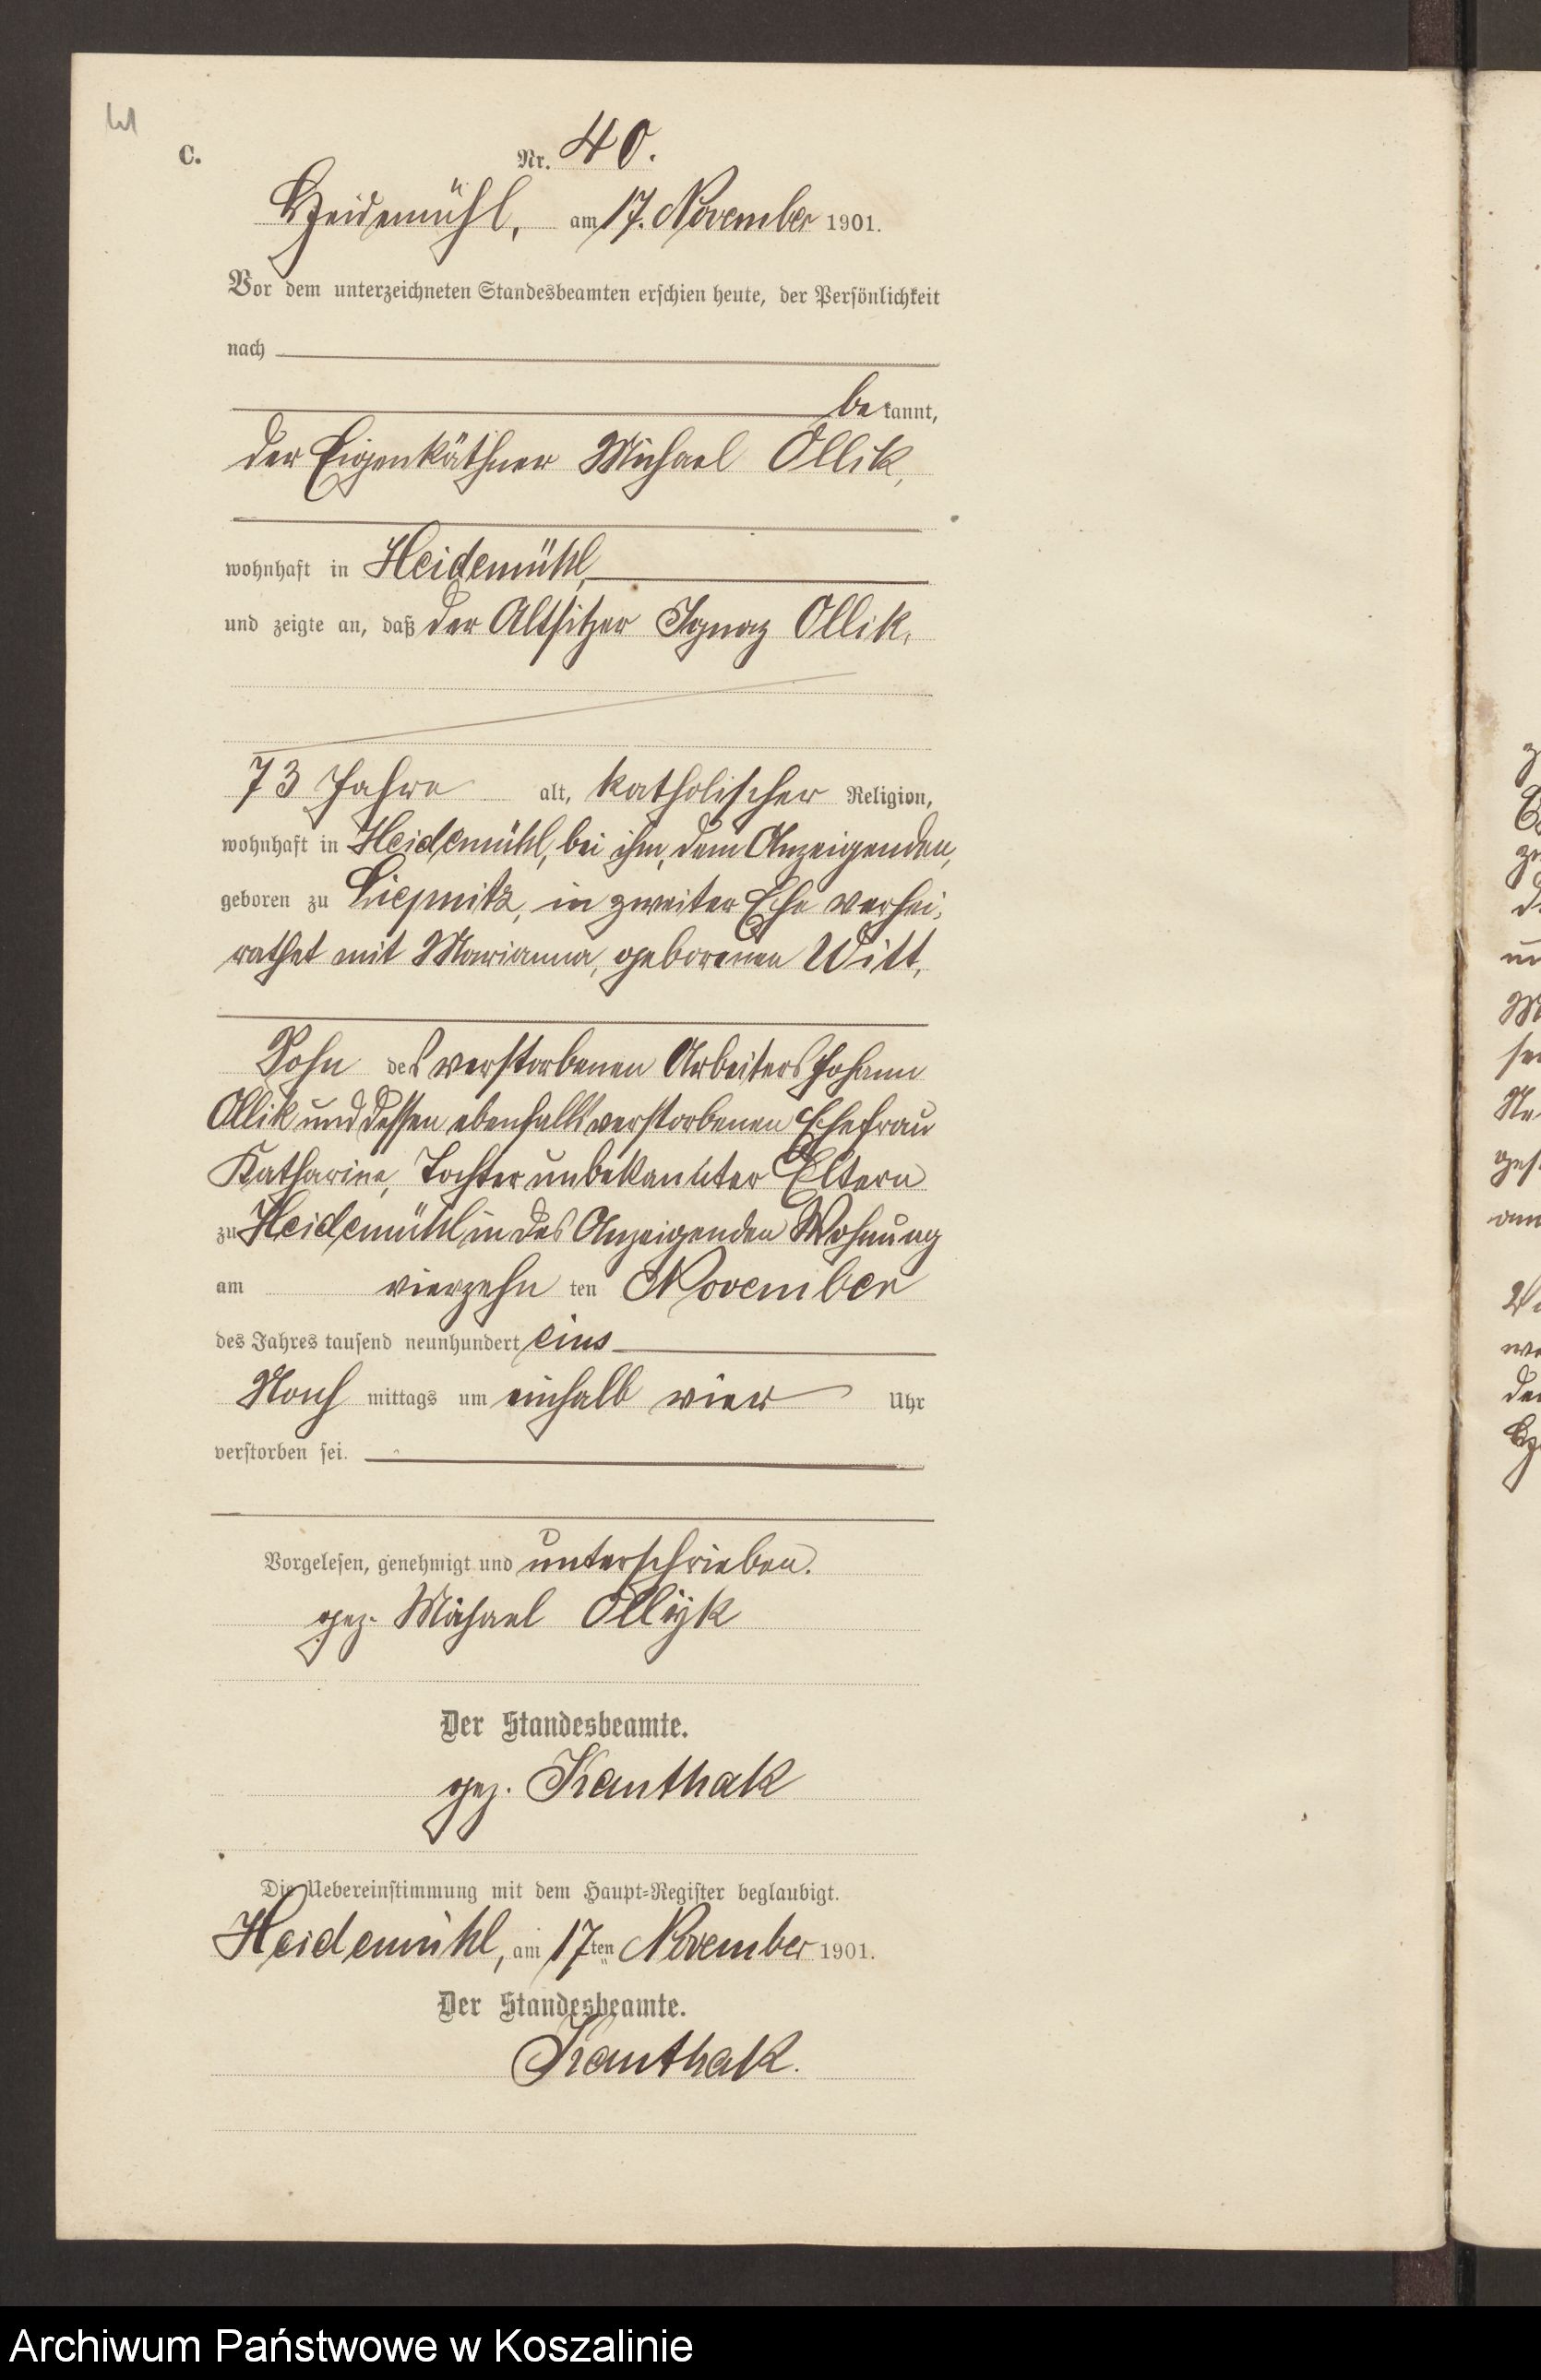 C.
Nr. 40.
Heidemühl, am 17. November 1901.
Vor dem unterzeichneten Standesbeamten erschien heute, der Persönlichkeit
nach
be kannt,
der Eigenkäthner Michael Ollik,
wohnhaft in Heidemühl,
und zeigte an, daß der Altsitzer Ignaz Ollik,
73 Jahre alt, katholischer Religion,
wohnhaft in Heidemühl, bei ihm, dem Anzeigenden,
geboren zu Liepnitz, in zweiter Ehe verhei-
rathet mit Marianna, geborenen Witt,
Sohn des verstorbenen Arbeiters Johann
Ollik und dessen ebenfalls verstorbenen Ehefrau
Katharine, Tochter unbekannter Eltern
zu Heidemühl in des Anzeigenden Wohnung
am vierzehn ten November
des Jahres tausend neunhundert eins
Nach mittags um einhalb vier Uhr
verstorben sei.
Vorgelesen, genehmigt und unterschrieben.
gez. Michael Ollijk
Der Standesbeamte.
gez. Kanthak
Die Uebereinstimmung mit dem Haupt-Register beglaubigt.
Heidemühl, am 17ten November 1901.
Der Standesbeamte.
Kanthak.
Archiwum Państwowe w Koszalinie